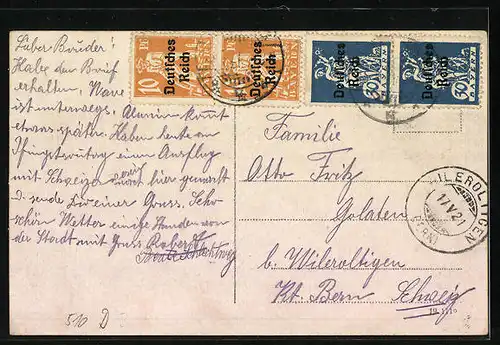 Lieber Bruder!
Habe den Brief
erhalten, Ware
ist unterwegs, Alumin kommt
etwas später. Haben heute an
Pfingstsonntag einen Ausflug
mit Schweizer hier gemacht
send
schön Wetter einige Stunden von
der Stadt mit Gruss Robert
510 D
10 Pf
BAYERN
Deutsches
Reich
Deutsches
Reich
50
BAYERN
Deutsches
Reich
50
BAYERN
Deutsches
Reich
Familie
Otto Fritz
Golaten
b. Wileroltigen
Kt. Bern Schweiz
WILEROLTIGEN
17.V.21
(BERN)